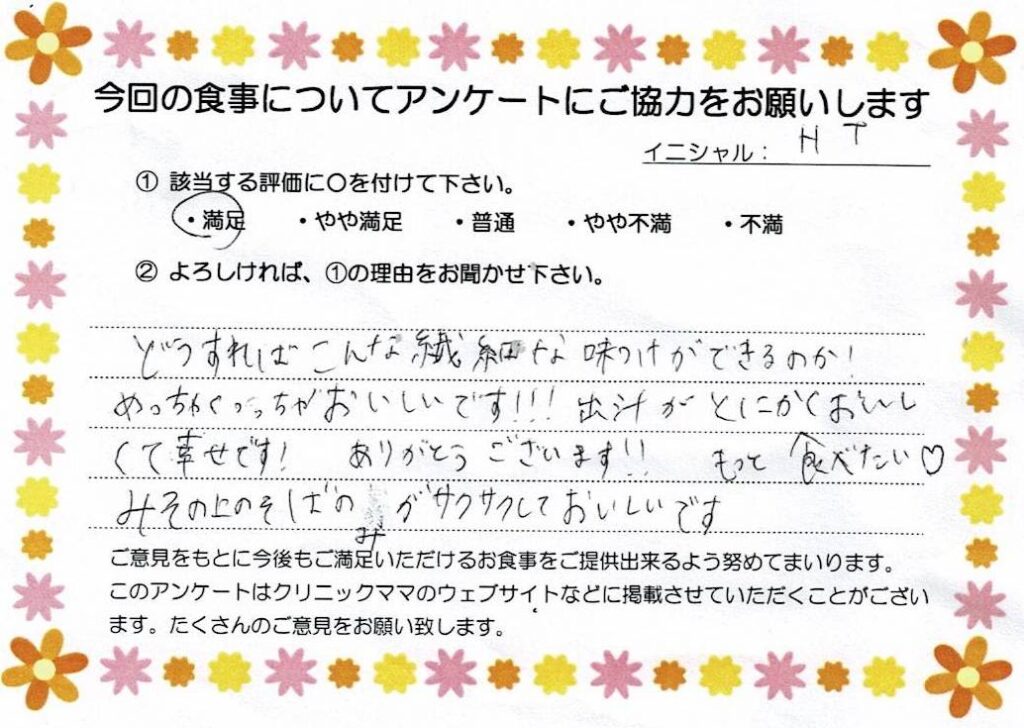 今回の食事についてアンケートにご協力をお願いします
イニシャル： H T
① 該当する評価に○を付けて下さい。
・満足 ・やや満足 ・普通 ・やや不満 ・不満
② よろしければ、①の理由をお聞かせ下さい。
どうすればこんな繊細な味つけができるのか！
めっちゃくっちゃおいしいです!!! 出汁がとにかくおいし
くて幸せです! ありがとうございます!! もっと食べたい♡
みその上のそばのみがサクサクしておいしいです
ご意見をもとに今後もご満足いただけるお食事をご提供出来るよう努めてまいります。
このアンケートはクリニックママのウェブサイトなどに掲載させていただくことがござい
ます。たくさんのご意見をお願い致します。